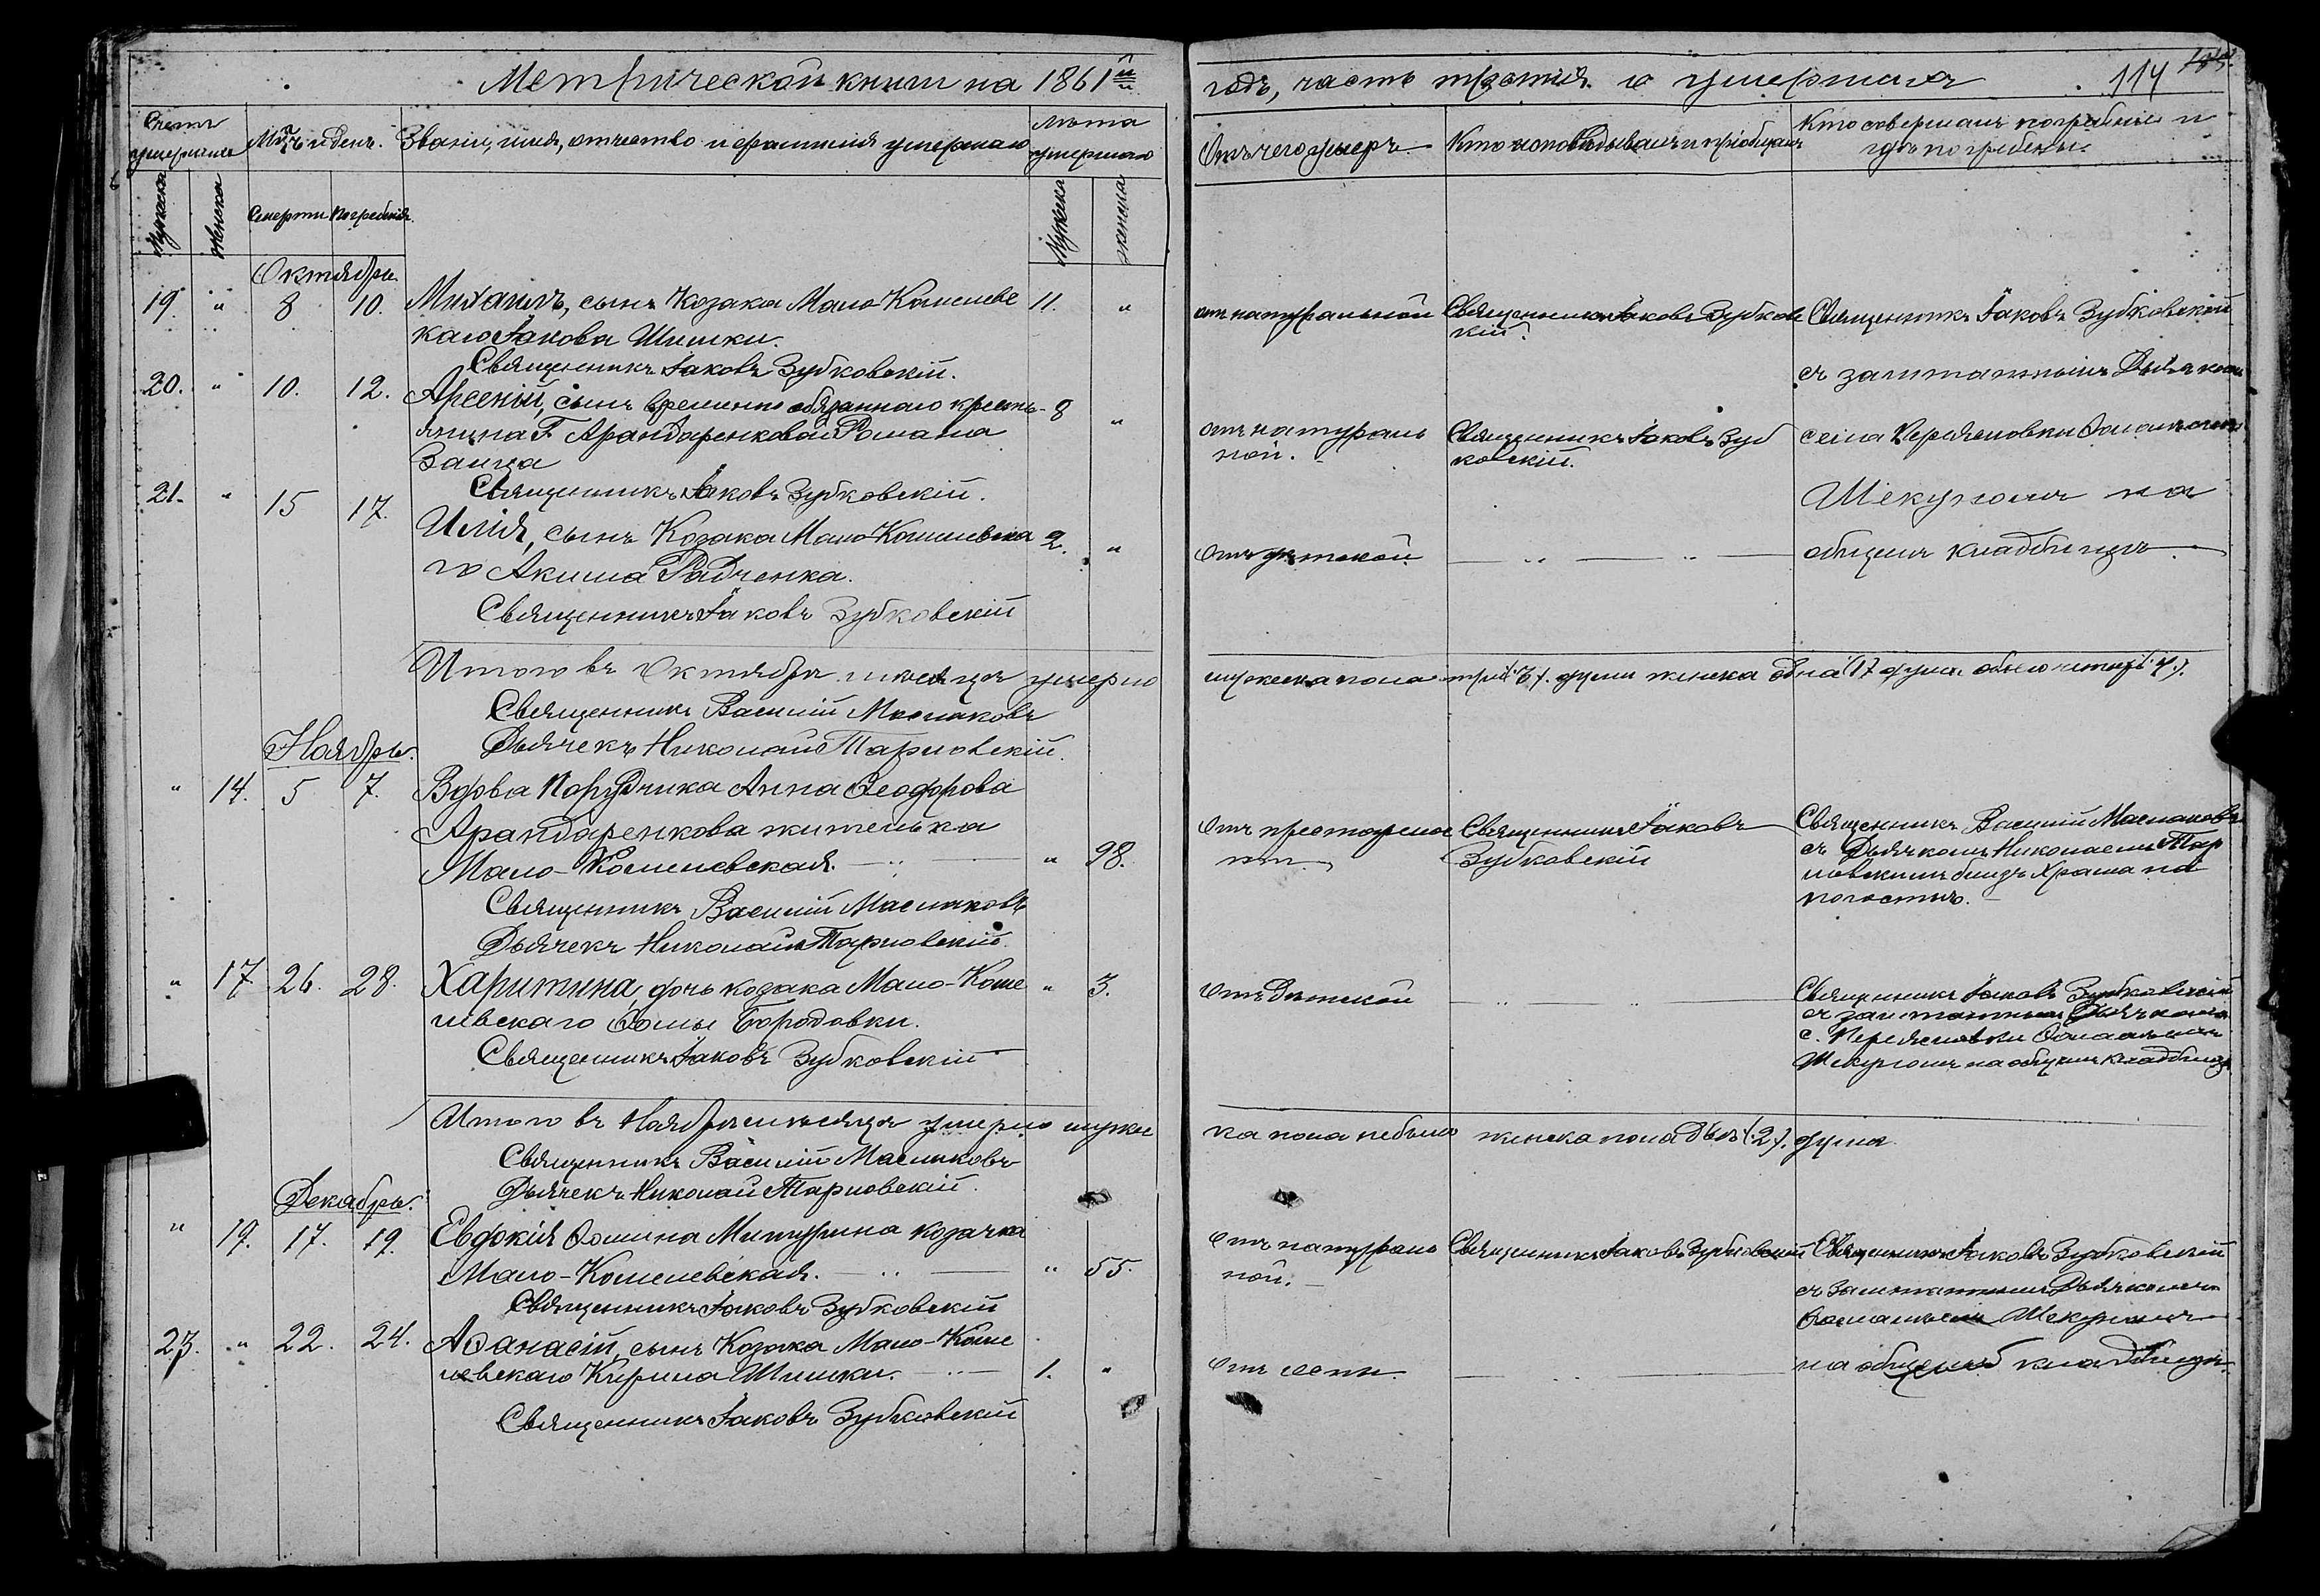 Метрической книги на 1861й
годъ, часть третія о умершихъ
114
Счетъ умершихъ
Мцъ и день.
Званіе, имя, отчество и фамилія умершаго
Лѣта умершаго
Отъ чего умеръ
Кто исповѣдывалъ и пріобщалъ
Кто совершалъ погребеніе и
гдѣ погребены.
Мужеска
Женска
Смерти
Погребенія
Мужеска
женска
Октябрь
19. " 8 10. Михаилъ, сынъ Козака Мало-Кошелевс 11. "
каго Іакова Шишки.
Священникъ Іаковъ Зубковскій.
отъ натуральной
Священникъ Іаковъ Зубковс
кій.
Священникъ Іаковъ Зубковскій
съ заштатнымъ Дьячкомъ
села Переясловки
на
общемъ кладбищѣ
20. " 10. 12. Арсеній, сынъ временно обязаннаго кресть- 8 "
янина Г. Арандаренковой Романа
Заица
Священникъ Іаковъ Зубковскій.
отъ натураль
ной.
Священникъ Іаковъ Зуб
ковскій.
21. " 15 17. Илія, сынъ Козака Мало-Кошелевска 2. "
го Акима Радченка.
Священникъ Іаковъ Зубковскій
Отъ дѣтской
Итого въ Октябрѣ мѣсяцѣ умерло
мужеска пола три (:3:). души женска одна (1) душа обоего четыре (:4:).
Священникъ Василій Маслаковъ
Дьячекъ Николай Тарновскій.
Ноябрь.
" 14. 5 7. Вдова Порудчика Анна Ѳеодорова
Арандаренкова жителька
Мало-Кошелевская. " 98.
Священникъ Василій Маслаковъ
Дьячекъ Николай Тарновскій
Отъ престарело
сти
Священникъ Іаковъ
Зубковскій
Священникъ Василій Маслаковъ
съ Дьячкомъ Николаемъ Тар
новскимъ близъ Храма на
погостѣ.
" 17 26. 28. Харитина, дочь козака Мало-Коше " 3.
левскаго Ѳомы Бородовки.
Священникъ Іаковъ Зубковскій
Отъ Дѣтской
Священникъ Іаковъ Зубковскій
съ заштатнымъ Дьячкомъ
с. Переясловки
на общемъ кладбищѣ
Итого въ Ноябрѣ мѣсяцѣ умерло мужес
ка пола небыло женска пола двѣ (:2:). душа
Священникъ Василій Маслаковъ
Дьячекъ Николай Тарновскій.
Декабрь.
" 19. 17. 19. Евдокія Ѳомина козачка
Мало-Кошелевская. " 55.
Священникъ Іаковъ Зубковскій
Отъ натураль
ной.
Священникъ Іаковъ Зубковскій
Священникъ Іаковъ Зубковскій
съ заштатнымъ Дьячкомъ
на общемъ кладбищѣ.
23. " 22. 24. Аѳанасій, сынъ Козака Мало-Коше
левскаго Кирила Шишки. 1. "
Священникъ Іаковъ Зубковскій
Отъ оспы.